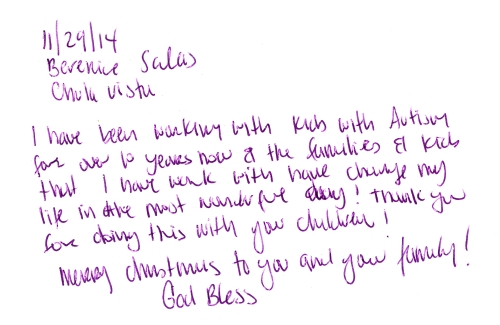 11/29/14
Berenice Salas
Chula vista
I have been working with kids with Autism
for over 10 years now & the families & kids
that I have work with have change my
life in the most wonderful way! Thank you
for doing this with your children!
Merry christmas to you and your family!
God Bless